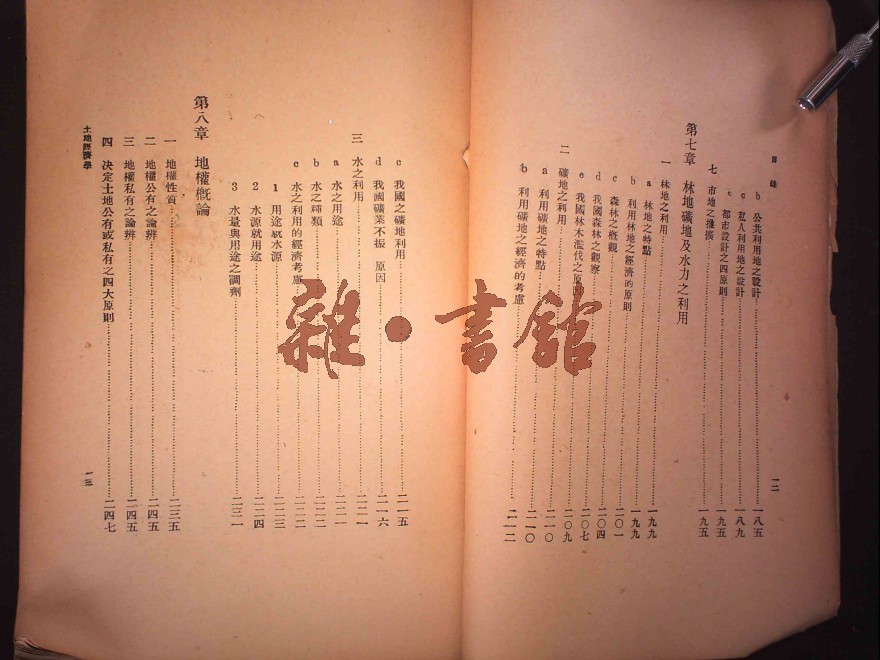 目錄
b 公共利用地之設計……一八五
c 私人利用地之設計……一八九
都市設計之四原則……一九五
七 市地之擴張……一九五
第七章 林地礦地及水力之利用
一 林地之利用……一九九
a 林地之特點……一九九
b 利用林地之經濟的原則……一九九
c 森林之概觀……二〇一
d 我國森林之觀察……二〇四
e 我國林木濫伐之原因……二〇七
二 礦地之利用……二〇九
a 利用礦地之特點……二一〇
b 利用礦地之經濟的考慮……二一二
一二
c 我國之礦地利用……二一五
d 我國礦業不振 原因……二一六
三 水之利用……二二一
a 水之用途……二二一
b 水之種類……二二二
c 水之利用的經濟考慮……二二二
1 用途就水源……二二三
2 水源就用途……二二四
3 水量與用途之調劑……二三一
第八章 地權概論
一 地權性質……二三五
二 地權公有之論辨……二四五
三 地權私有之論辨……二四五
四 決定土地公有或私有之四大原則……二四七
土地經濟學
一三
雜·書館